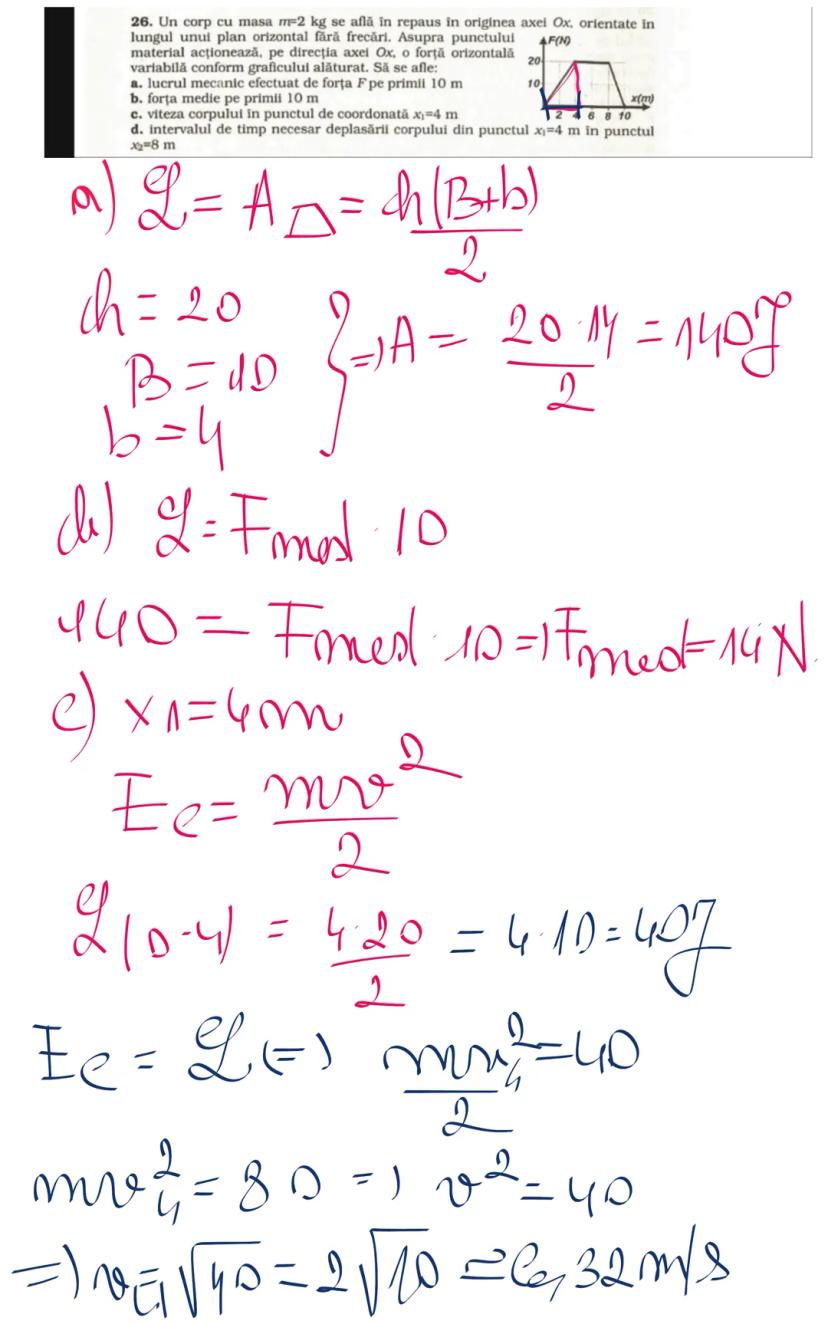 26. Un corp cu masa m=2 kg se află în repaus în originea axei Ox, orientate în
lungul unui plan orizontal fără frecări. Asupra punctului
material acționează, pe direcția axei Ox, o forță orizontală
variabilă conform graficului alăturat. Să se afle:
a. lucrul mecanic efectuat de forța F pe primii 10 m
b. forța medie pe primii 10 m
c. viteza corpului în punctul de coordonată x₁=4 m
d. intervalul de timp necesar deplasării corpului din punctul x₁=4 m în punctul
x₂=8 m
F(N)
20
10
x(m)
2 4 6 8 10
a) L = A = h(B+b)/2
h = 20
B = 10
b = 4
} => A = 20·14/2 = 140J
b) L = Fmed · 10
140 = Fmed · 10 => Fmed = 14 N
c) x1 = 4m
Ec = mv²/2
L(0-4) = 4·20/2 = 4·10 = 40J
Ec = L (=) mv₄²/2 = 40
mv₄² = 80 => v² = 40
=> v = √40 = 2√10 = 6,32 m/s